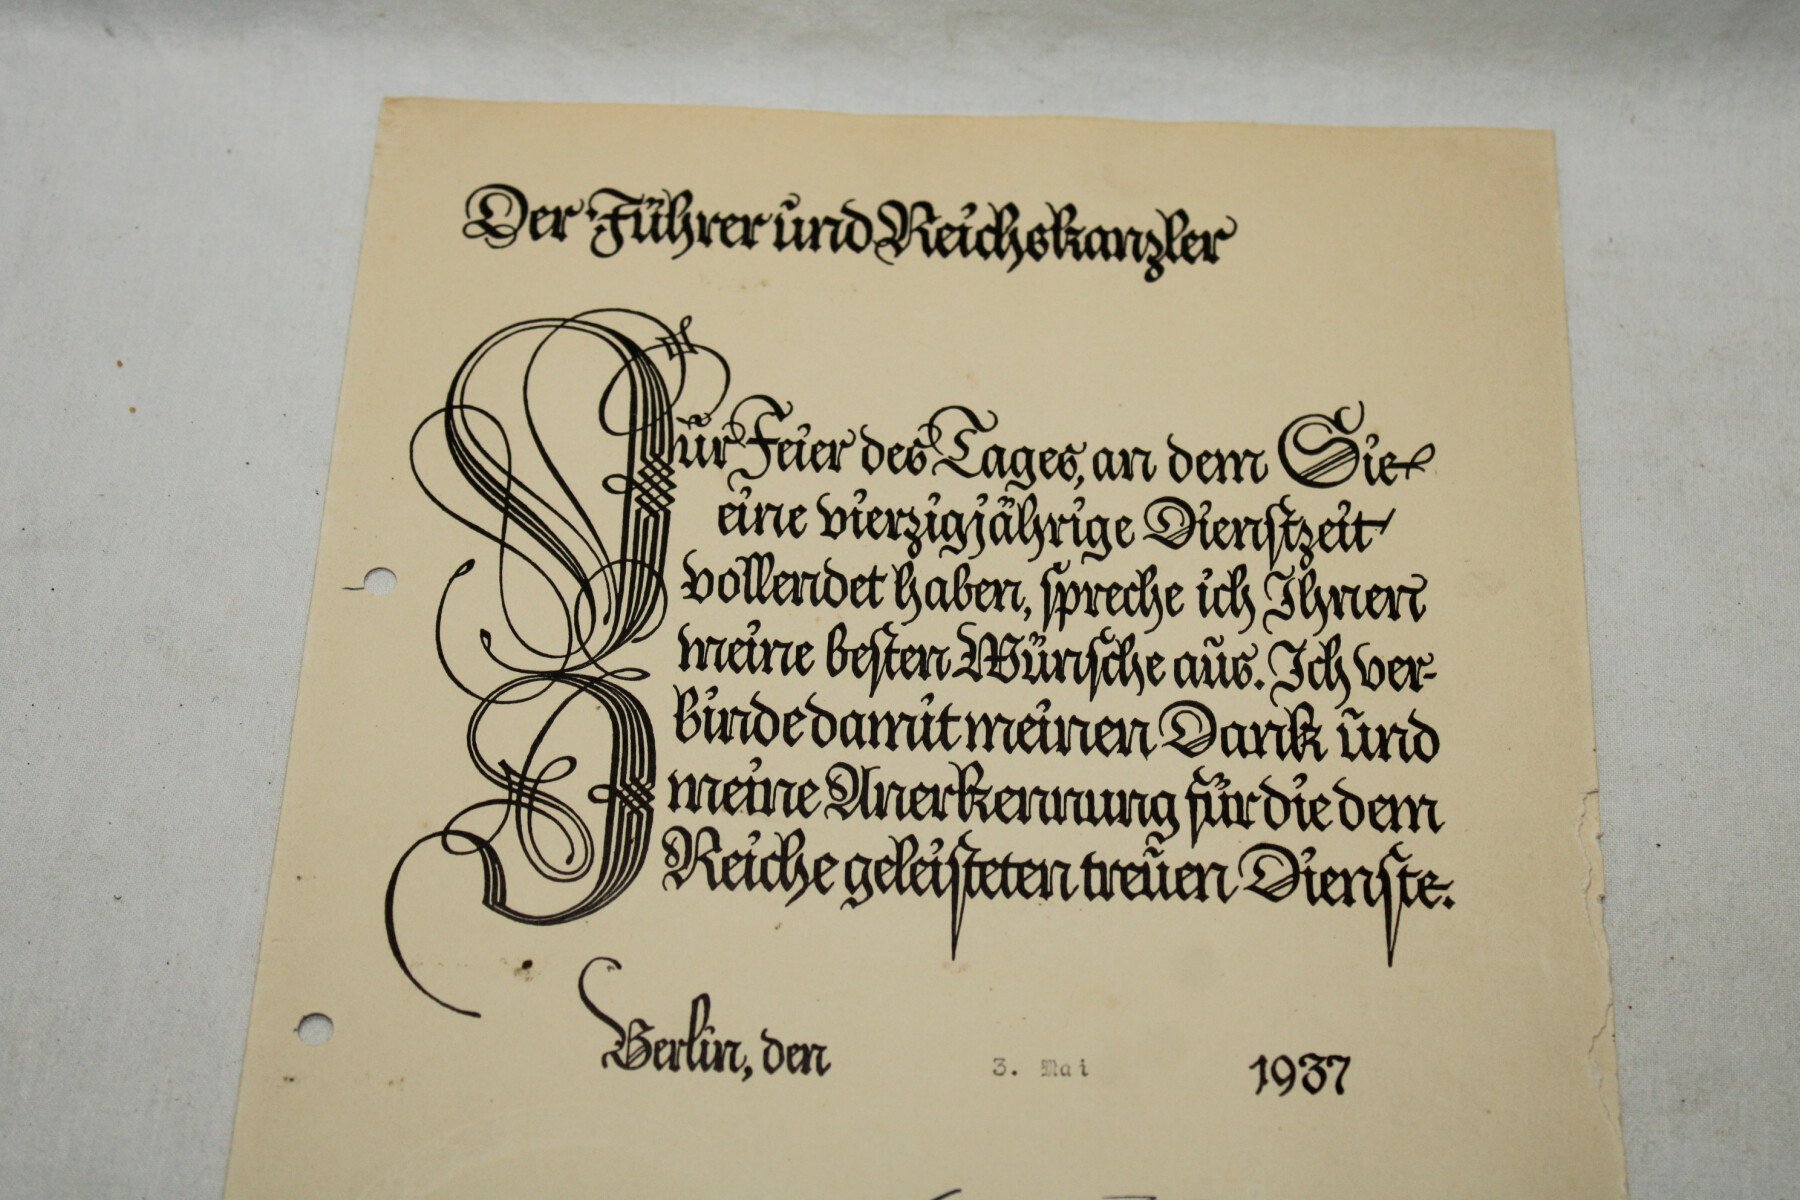 Der Führer und Reichskanzler
Zur Feier des Tages, an dem Sie
eine vierzigjährige Dienstzeit
vollendet haben, spreche ich Ihnen
meine besten Wünsche aus. Ich ver-
binde damit meinen Dank und
meine Anerkennung für die dem
Reiche geleisteten treuen Dienste.
Berlin, den 3. Mai 1937